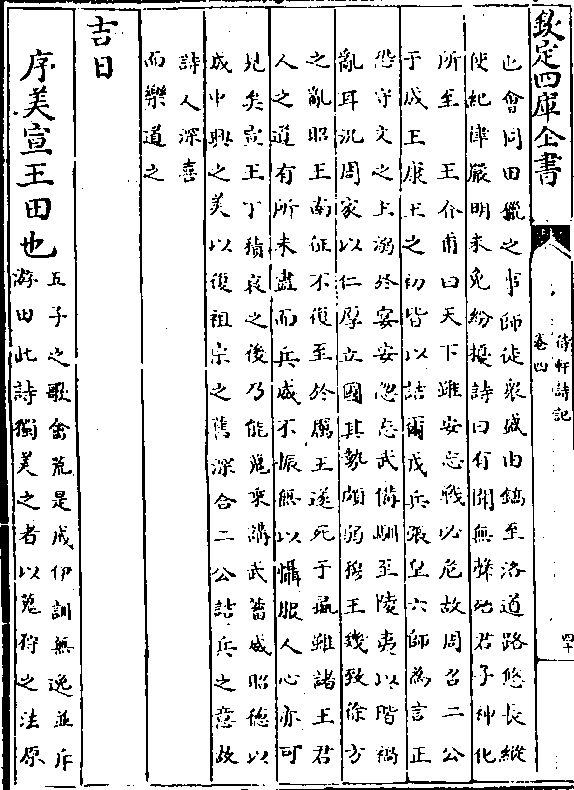 欽定四庫全書
待軒詩記
卷四
四十
也會同田獵之事師徒衆盛由鎬至洛道路悠長縱
使紀律嚴明未免紛擾詩曰有聞無聲此君子神化
所至 王介甫曰天下雖安忘戰必危故周召二公
于成王康王之初皆以詰爾戎兵張皇六師為言正
恐守文之主溺於宴安怠忘武備馴至陵夷以階禍
亂耳況周家以仁厚立國其勢頗弱穆王幾致徐方
之亂昭王南征不復至於厲王遂死于彘雖諸王君
人之道有所未盡而兵威不振無以懾服人心亦可
見矣宣王丁積衰之後乃能蒐乘講武蓄威昭德以
成中興之美以復祖宗之舊深合二公詰兵之意故
詩人深喜
而樂道之
吉日
序美宣王田也
五子之歌禽荒是戒伊訓無逸並斥
游田此詩獨美之者以蒐狩之法原